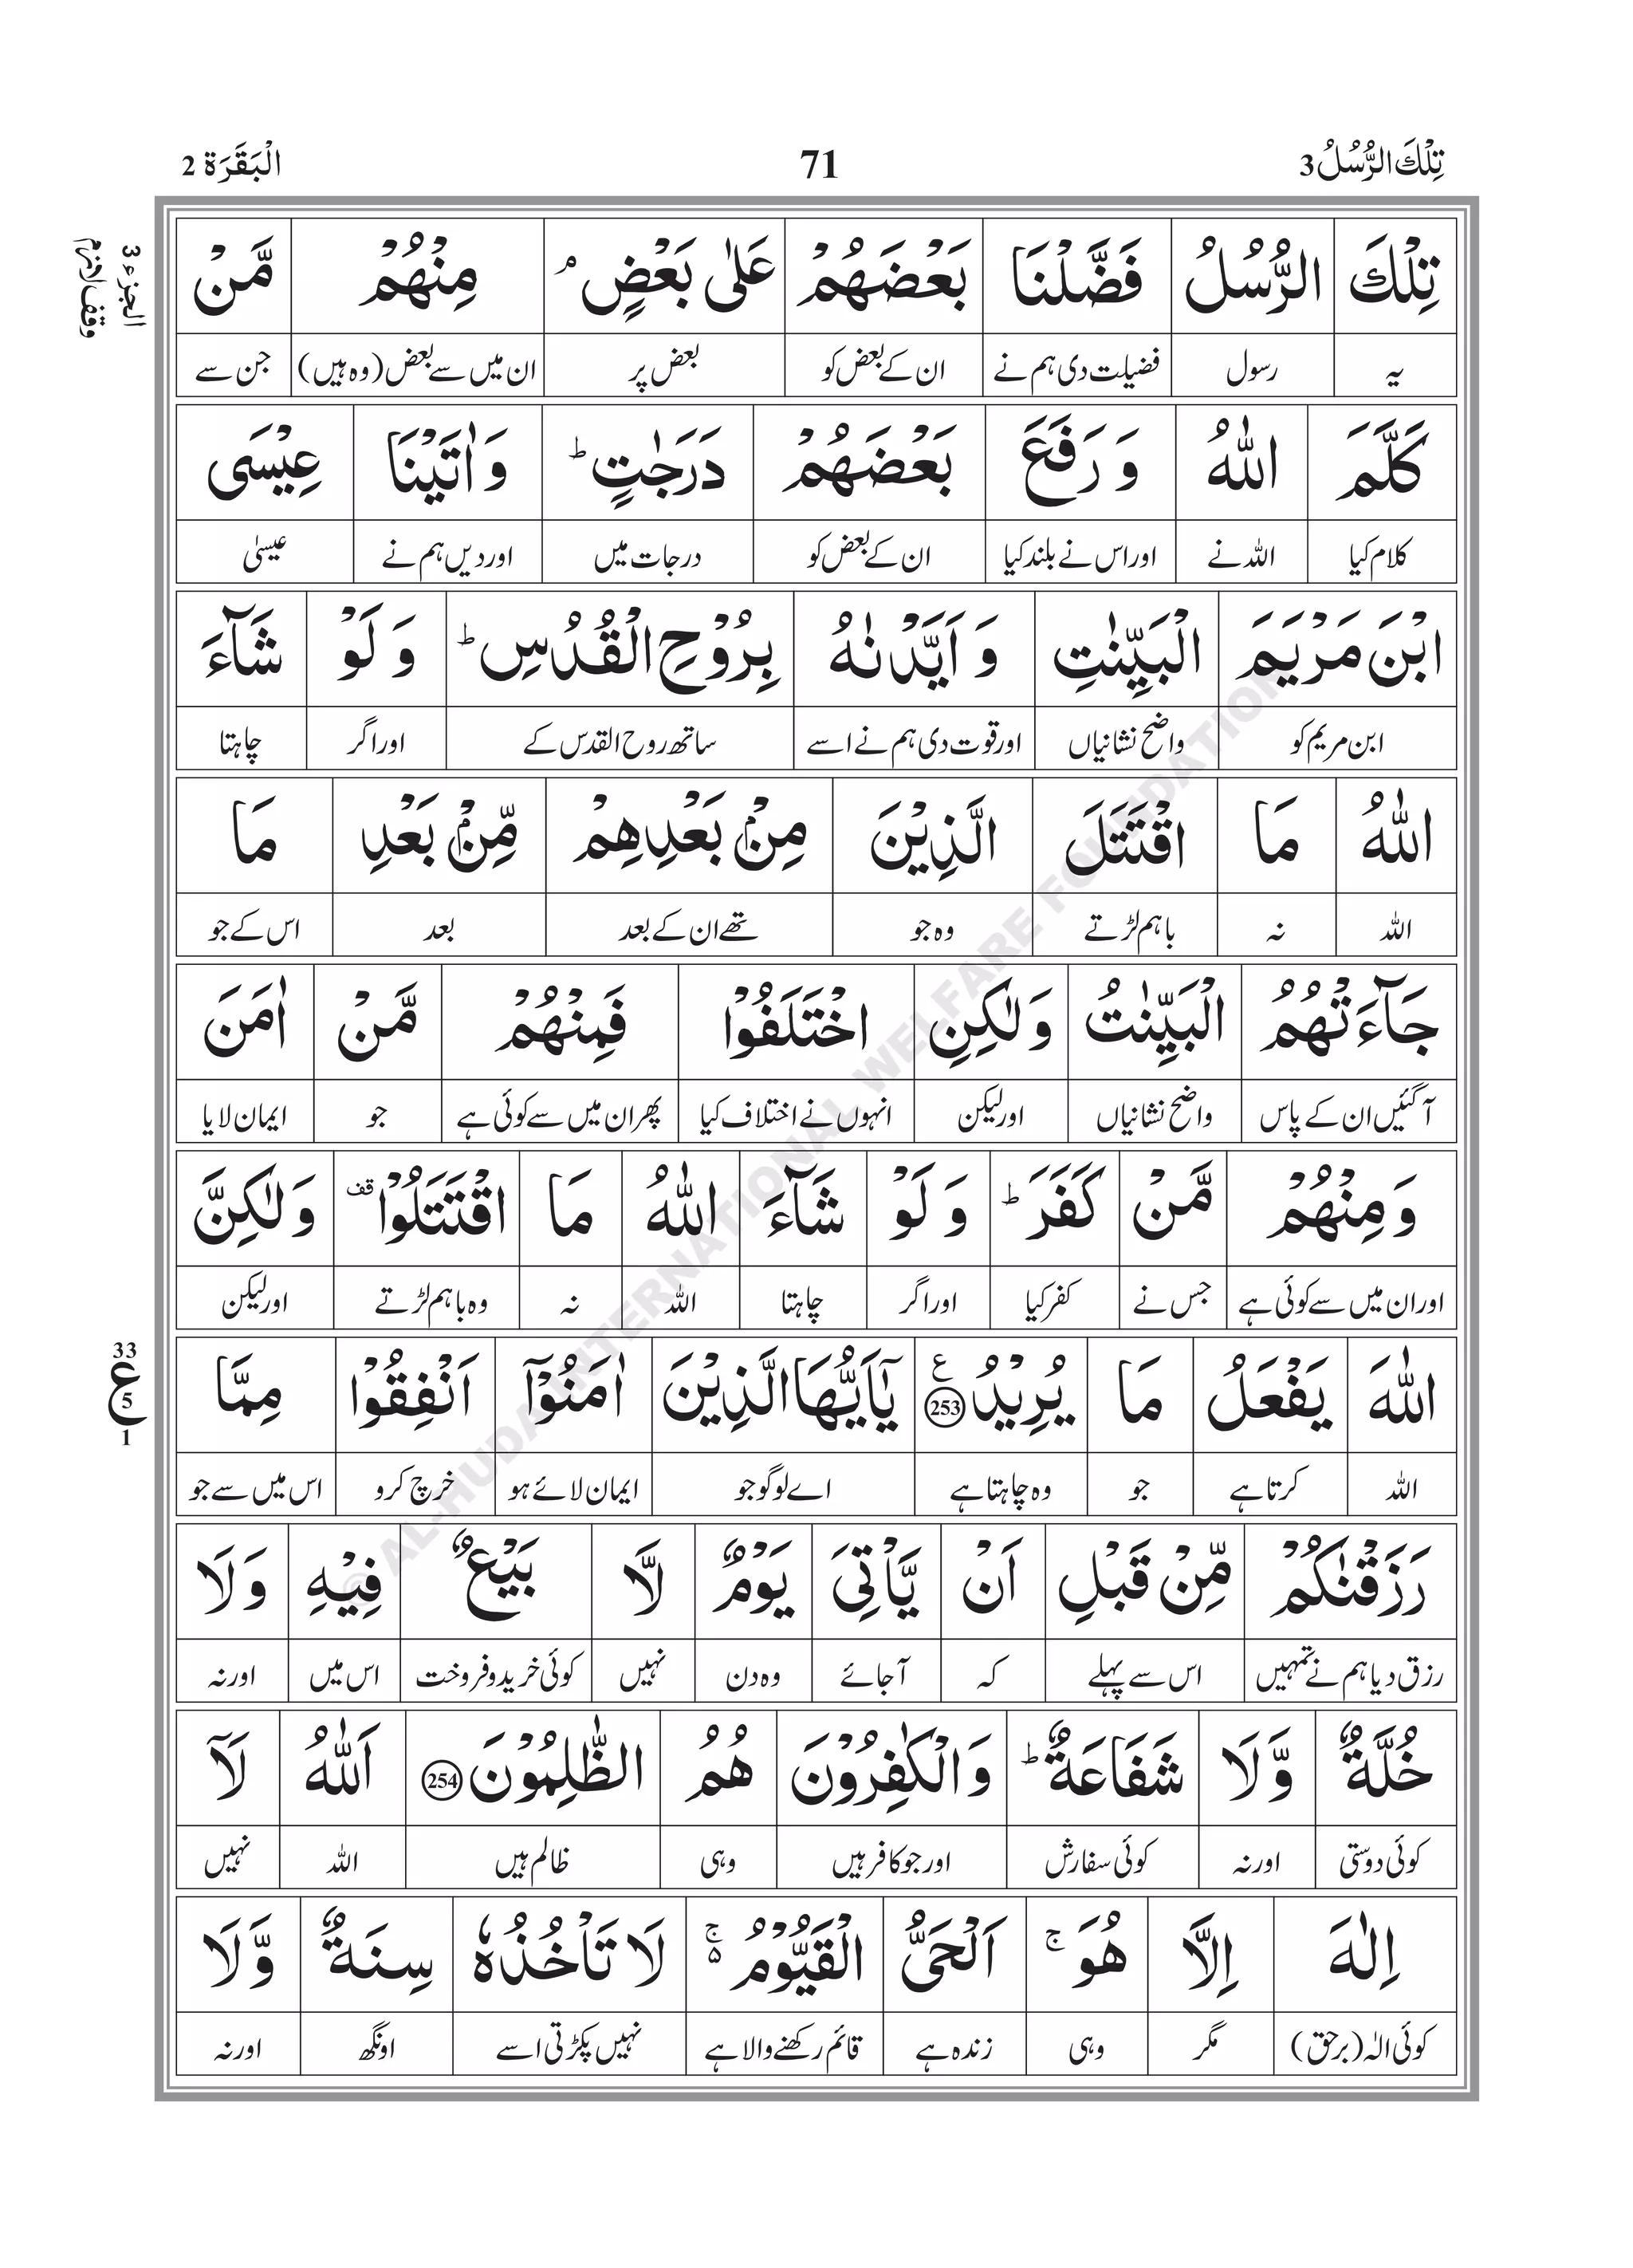 تِلْكَ الرُّسُلُ 3 71 الْبَقَرَة 2
الجزء 3
وقف لازم
تِلْكَ الرُّسُلُ فَضَّلْنَا بَعْضَهُمْ عَلٰى بَعْضٍ ۘ مِنْهُمْ مَّنْ
یہ رسول فضیلت دی ہم نے ان کے بعض کو بعض پر ان میں سے بعض (وہ ہیں) جن سے
كَلَّمَ اللّٰهُ وَ رَفَعَ بَعْضَهُمْ دَرَجٰتٍ ؕ وَ اٰتَيْنَا عِيْسَى
کلام کیا اللہ نے اور اس نے بلند کیا ان کے بعض کو درجات میں اور دیں ہم نے عیسیٰ
ابْنَ مَرْيَمَ الْبَيِّنٰتِ وَ اَيَّدْنٰهُ بِرُوْحِ الْقُدُسِ ؕ وَ لَوْ شَآءَ
ابن مریم کو واضح نشانیاں اور قوت دی ہم نے اسے ساتھ روح القدس کے اور اگر چاہتا
اللّٰهُ مَا اقْتَتَلَ الَّذِيْنَ مِنْۢ بَعْدِهِمْ مِّنْۢ بَعْدِ مَا
اللہ نہ باہم لڑتے وہ جو تھے ان کے بعد بعد اس کے جو
جَآءَتْهُمُ الْبَيِّنٰتُ وَلٰكِنِ اخْتَلَفُوْا فَمِنْهُمْ مَّنْ اٰمَنَ
آ گئیں ان کے پاس واضح نشانیاں اور لیکن انہوں نے اختلاف کیا پھر ان میں سے کوئی ہے جو ایمان لایا
وَمِنْهُمْ مَّنْ كَفَرَ ؕ وَ لَوْ شَآءَ اللّٰهُ مَا اقْتَتَلُوْا قف وَلٰكِنَّ
اور ان میں سے کوئی ہے جس نے کفر کیا اور اگر چاہتا اللہ نہ وہ باہم لڑتے اور لیکن
اللّٰهَ يَفْعَلُ مَا يُرِيْدُ ع 253 يٰۤاَيُّهَا الَّذِيْنَ اٰمَنُوْۤا اَنْفِقُوْا مِمَّا
33
ع 5
1
اللہ کرتا ہے جو وہ چاہتا ہے اے لوگو جو ایمان لائے ہو خرچ کرو اس میں سے جو
رَزَقْنٰكُمْ مِّنْ قَبْلِ اَنْ يَّاْتِيَ يَوْمٌ لَّا بَيْعٌ فِيْهِ وَلَا
رزق دیا ہم نے تمہیں اس سے پہلے کہ آ جائے وہ دن نہیں کوئی خرید و فروخت اس میں اور نہ
خُلَّةٌ وَّلَا شَفَاعَةٌ ؕ وَالْكٰفِرُوْنَ هُمُ الظّٰلِمُوْنَ 254 اَللّٰهُ لَاۤ
کوئی دوستی اور نہ کوئی سفارش اور جو کافر ہیں وہی ظالم ہیں اللہ نہیں
اِلٰهَ اِلَّا هُوَ ۚ اَلْحَيُّ الْقَيُّوْمُ ۵ۚ لَا تَاْخُذُهٗ سِنَةٌ وَّلَا
کوئی الٰہ (برحق) مگر وہی زندہ ہے قائم رکھنے والا ہے نہیں پکڑتی اسے اونگھ اور نہ
© AL-HUDA INTERNATIONAL WELFARE FOUNDATION